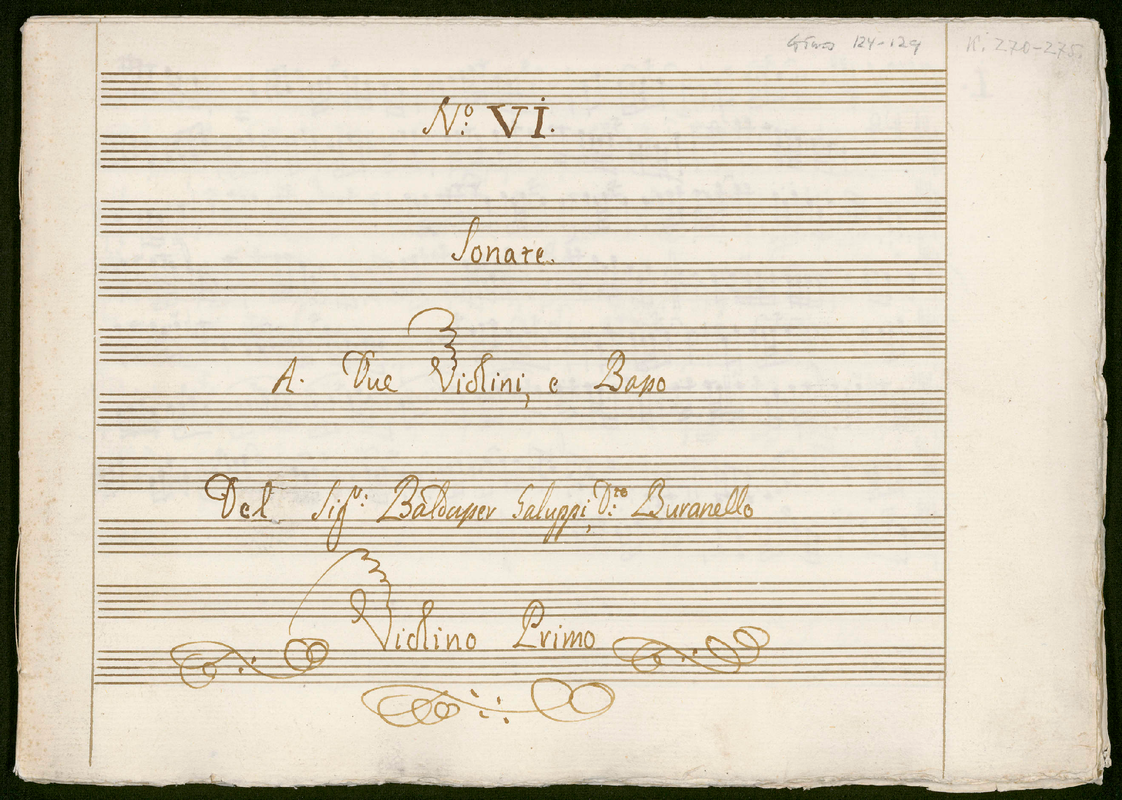 124-129 N: 270-275.
No: VI.
Sonate.
A. Due Violini, e Basso
Del Sigr: Baldasser Galuppi, Dto: Buranello
Violino Primo